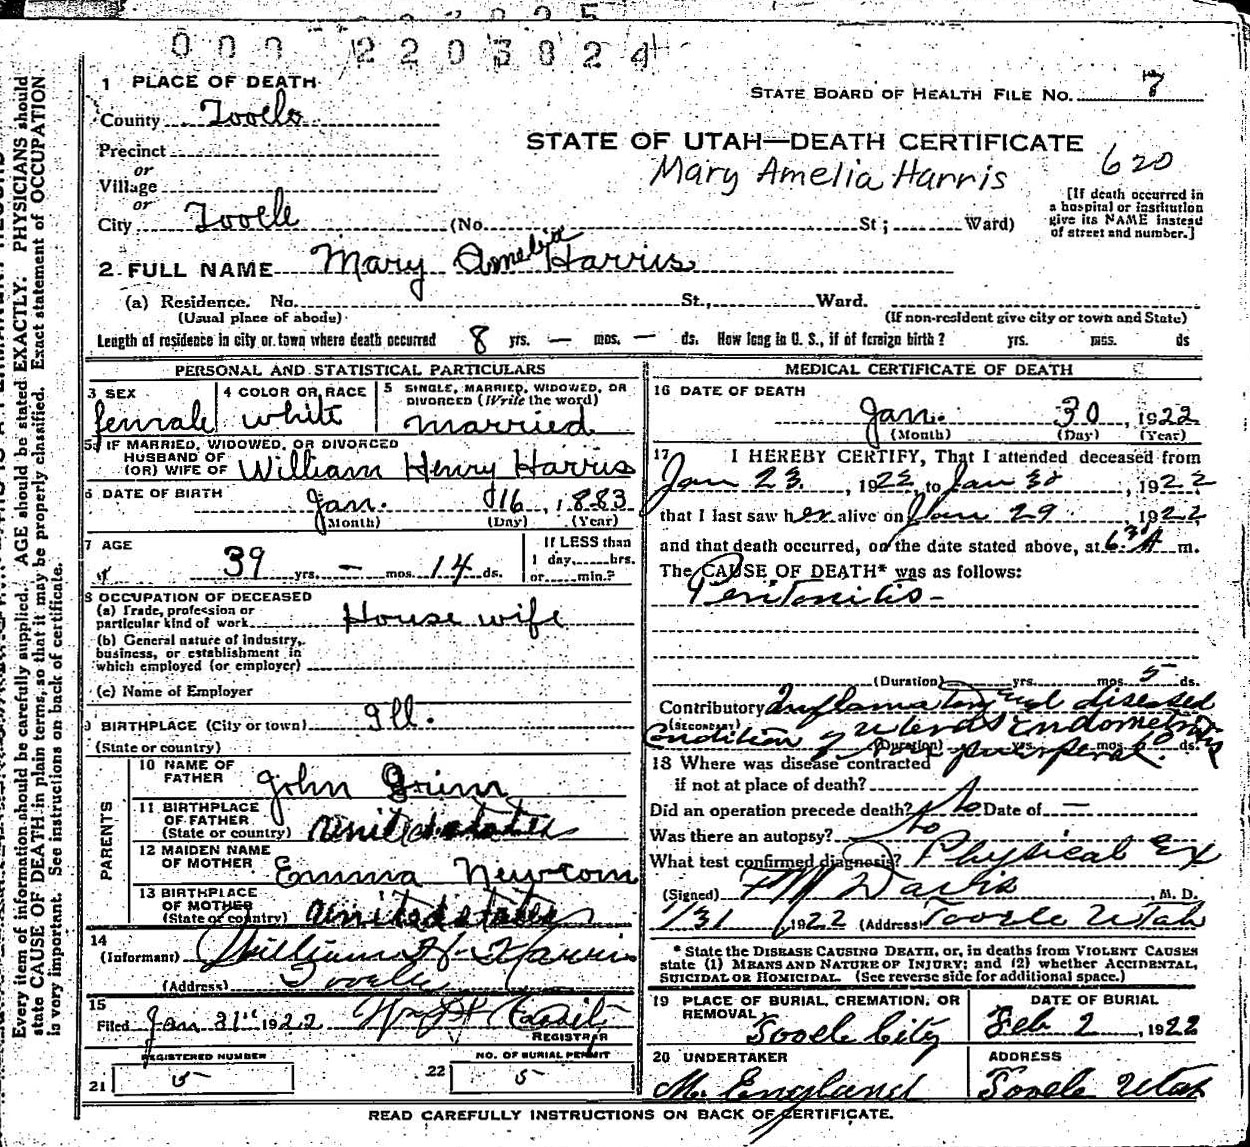 000 2203824
1 PLACE OF DEATH
STATE BOARD OF HEALTH FILE NO. 7
County Tooele
Precinct
STATE OF UTAH—DEATH CERTIFICATE
or
Village
Mary Amelia Harris 620
or
City Tooele (No. St; Ward)
[If death occurred in
a hospital or institution
give its NAME instead
of street and number.]
2 FULL NAME Mary Amelia Harris
(a) Residence. No. St., Ward.
(Usual place of abode) (If non-resident give city or town and State)
Length of residence in city or town where death occurred 8 yrs. — mos. — ds. How long in U. S., if of foreign birth? yrs. mos. ds
PERSONAL AND STATISTICAL PARTICULARS
3 SEX female
4 COLOR OR RACE white
5 SINGLE, MARRIED, WIDOWED, OR
DIVORCED (Write the word)
married
5a IF MARRIED, WIDOWED, OR DIVORCED
HUSBAND OF
(OR) WIFE OF William Henry Harris
6 DATE OF BIRTH Jan. 16, 1883
(Month) (Day) (Year)
7 AGE 39 yrs. — mos. 14 ds.
If LESS than
1 day, hrs.
or min.?
8 OCCUPATION OF DECEASED
(a) Trade, profession or
particular kind of work House wife
(b) General nature of industry,
business, or establishment in
which employed (or employer)
(c) Name of Employer
9 BIRTHPLACE (City or town) Ill.
(State or country)
PARENTS
10 NAME OF
FATHER John Grinn
11 BIRTHPLACE
OF FATHER
(State or country) United states
12 MAIDEN NAME
OF MOTHER Emma Newcom
13 BIRTHPLACE
OF MOTHER
(State or country) United states
14
(Informant) William H. Harris
(Address) Tooele
15
Filed Jan 31st 1922
REGISTRAR
REGISTERED NUMBER NO. OF BURIAL PERMIT
21 5 22 5
MEDICAL CERTIFICATE OF DEATH
16 DATE OF DEATH
Jan. 30, 1922
(Month) (Day) (Year)
17 I HEREBY CERTIFY, That I attended deceased from
Jan 23, 1922, to Jan 30, 1922
that I last saw her alive on Jan 29 1922
and that death occurred, on the date stated above, at 6 30 A m.
The CAUSE OF DEATH* was as follows:
Peritonitis -
(Duration) yrs. mos. 5 ds.
Contributory Inflamatory and diseased
(SECONDARY)
condition of uterus Endometritis
(Duration) yrs. mos. ds.
puerperal.
18 Where was disease contracted
if not at place of death?
Did an operation precede death? No Date of —
Was there an autopsy? No
What test confirmed diagnosis? Physical Ex
(Signed) Davis M. D.
1/31, 1922 (Address) Tooele Utah
* State the DISEASE CAUSING DEATH, or, in deaths from VIOLENT CAUSES
state (1) MEANS AND NATURE OF INJURY; and (2) whether ACCIDENTAL,
SUICIDAL OR HOMICIDAL. (See reverse side for additional space.)
19 PLACE OF BURIAL, CREMATION, OR
REMOVAL Tooele City
DATE OF BURIAL
Feb 2, 1922
20 UNDERTAKER
M. England
ADDRESS
Tooele Utah
READ CAREFULLY INSTRUCTIONS ON BACK OF CERTIFICATE.
Every item of information should be carefully supplied. AGE should be stated EXACTLY. PHYSICIANS should
state CAUSE OF DEATH in plain terms, so that it may be properly classified. Exact statement of OCCUPATION
is very important. See instructions on back of certificate.